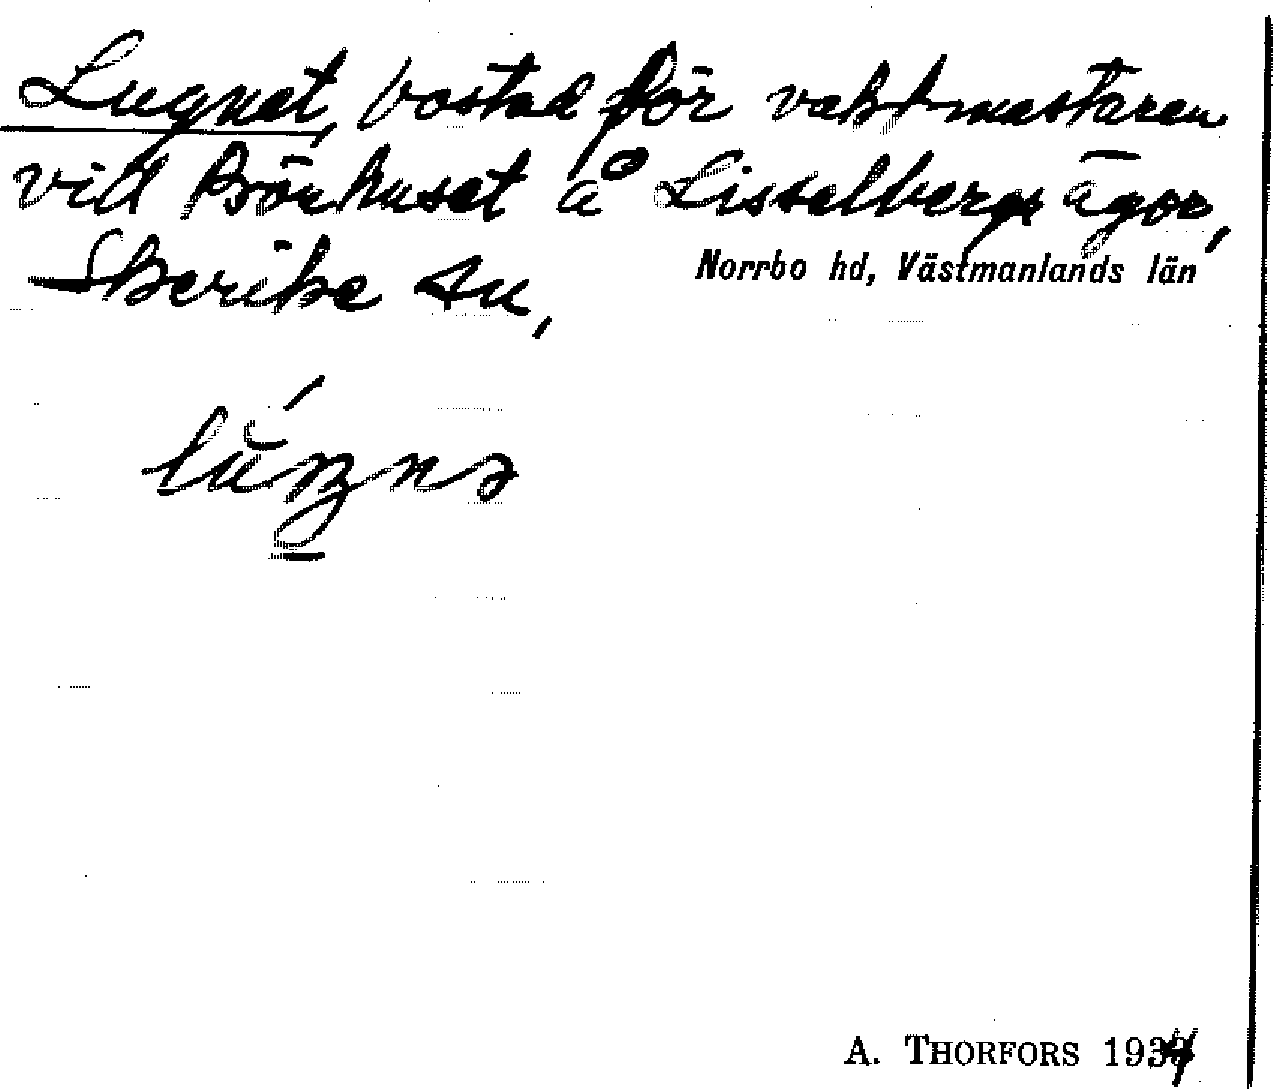 Lugnet, bostad för vaktmästaren
vid Bönhuset å Lisselbergs ägor,
Skerike sn,
Norrbo hd, Västmanlands län
A. THORFORS 1934